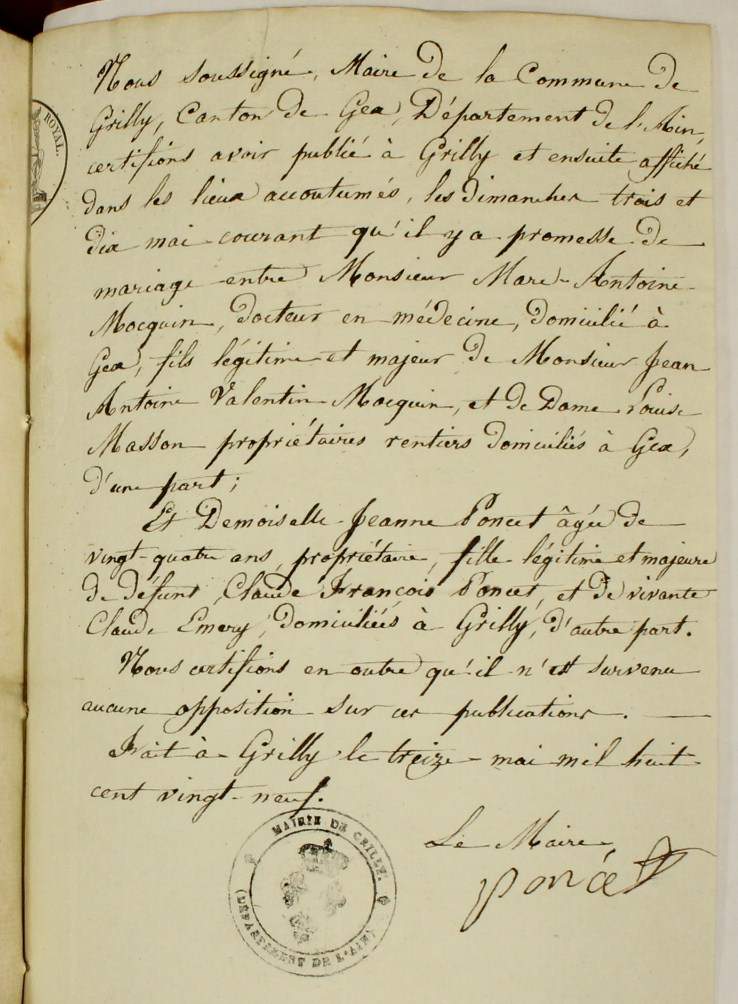 ROYAL.
Nous soussigné, Maire de la Commune de
Grilly, Canton de Gex, Département de l'Ain,
certifions avoir publié à Grilly et ensuite affiché
dans les lieux accoutumés, les Dimanches trois et
dix mai courant qu'il y a promesse de
mariage entre Monsieur Marc-Antoine
Mocquin, Docteur en médecine, domicilié à
Gex, fils légitime et majeur de Monsieur Jean
Antoine Valentin Mocquin, et de Dame Louise
Masson propriétaires rentiers domiciliés à Gex,
d'une part;
Et Demoiselle Jeanne Poncet âgée de
vingt-quatre ans, propriétaire, fille légitime et majeure
de défunt Claude François Poncet, et de vivante
Claude Emery, domiciliées à Grilly, d'autre part.
Nous certifions en outre qu'il n'est survenu
aucune opposition sur ces publications. —
Fait à Grilly le treize mai mil huit
cent vingt-neuf.
Le Maire
Poncet
MAIRIE DE GRILLY.
(DEPARTEMENT DE L'AIN)